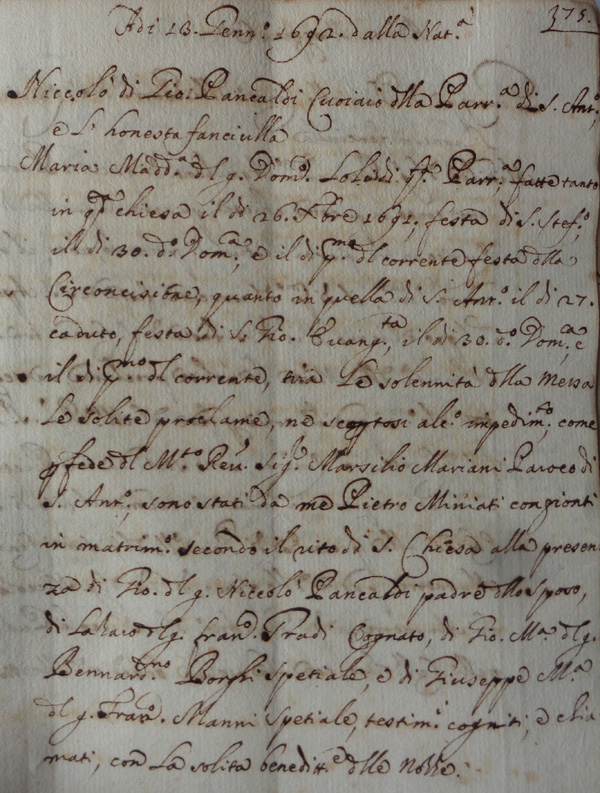 375.
Adi 13. Genn.º 1692. dalla Nat.ª
Niccolò di Gio: Pancaldi Cuoiaio dlla Parr.ª di S. Ant.º,
e L' honesta fanciulla
Maria Madd.ª dl q. Dom.º Lol di qª. Parr.ª fatte tanto
in qª chiesa il dì 26. Xbre 1691, festa di S. Stef.º,
il dì 30. dº. Dom.ca, e il dì pmo. dl corrente festa dlla
Circoncisione, quanto in quella di S. Ant.º il dì 27.
caduto, festa di S. Gio. Evang.ta, il dì 30. dº. Dom.ca e
il dì pmo. dl corrente, tra Le solennità dlla Messa
Le solite proclame, ne scoptosi alc.º impedim.to, come
p fede dl M.to Rev. Sig.r Marsilio Mariani Paroco di
S. Ant.º, sono stati da me Pietro Miniati congionti
in matrim.º secondo il rito di S. Chiesa alla presen
za di Gio. dl q. Niccolò Pancaldi padre dllo sposo,
di dl q. Fran.º Pradi Cognato, di Gio. M.ª dl q.
Bernard.no Borghi spetiale, e di Giuseppe M.ª
dl q. Fran.º Manni spetiale, testim.i cogniti, e chia
mati, con La solita benedit.e dlle Nozze.